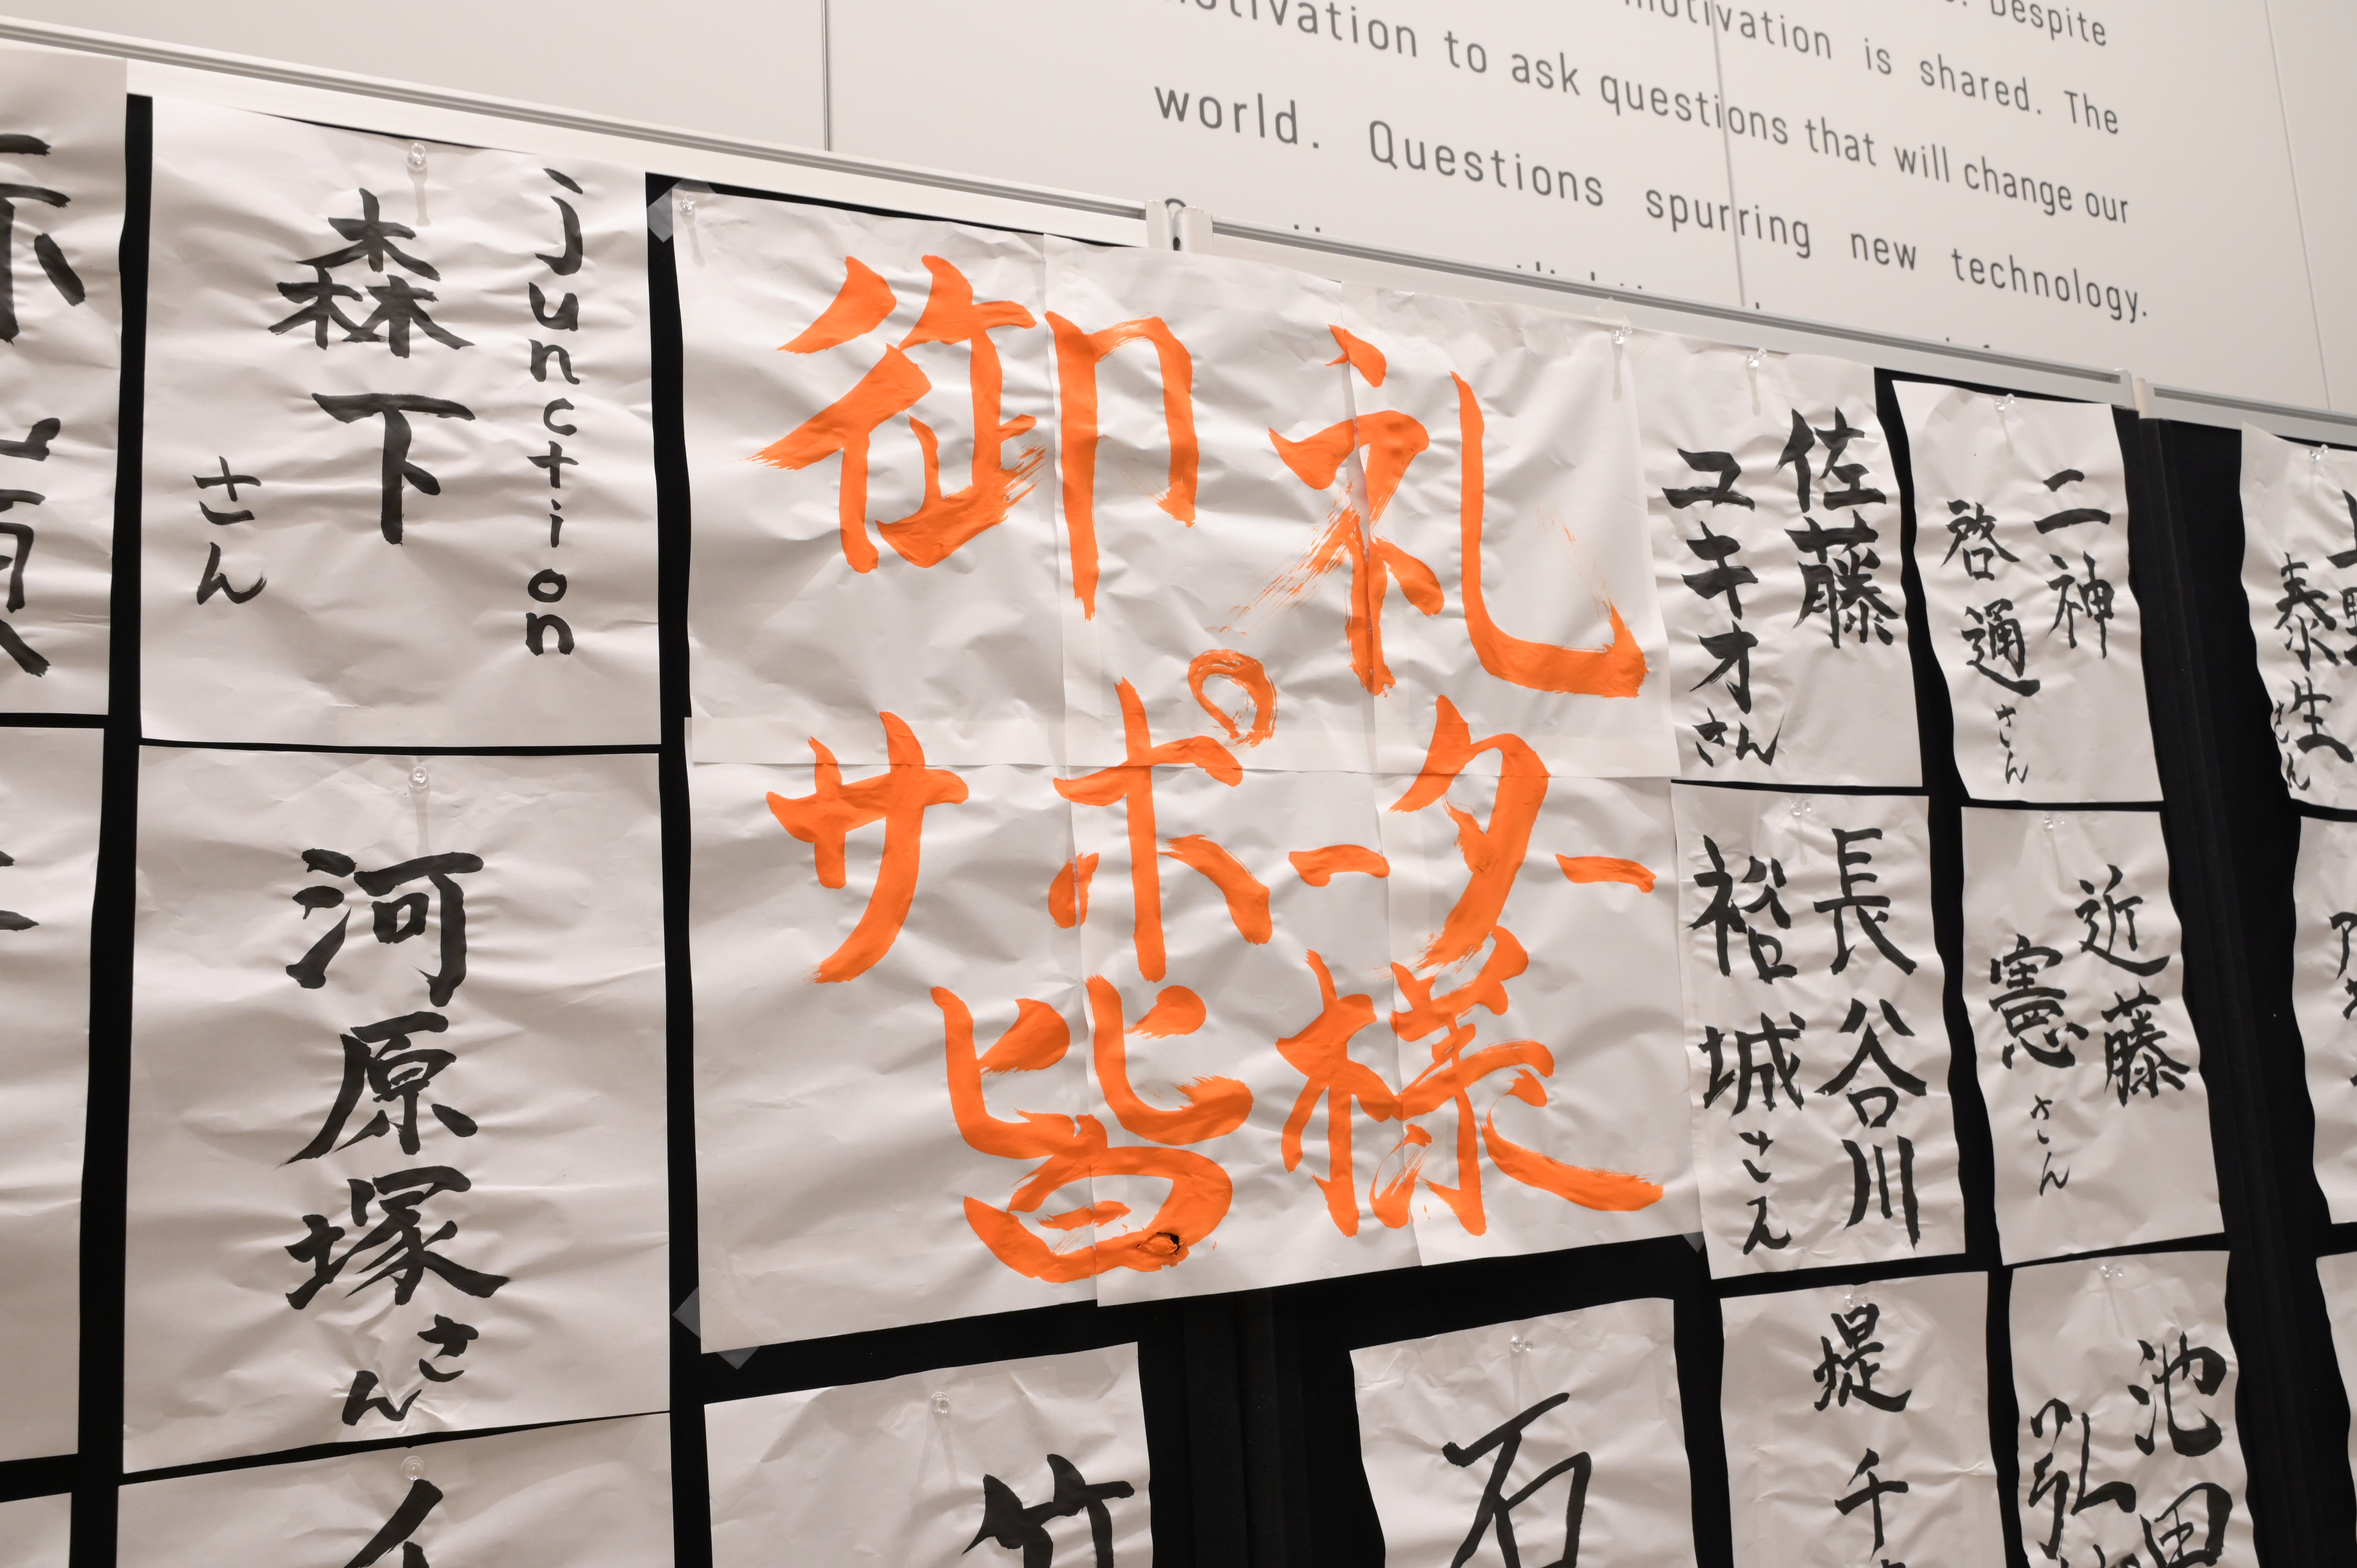 Despite
motivation is shared. The
motivation to ask questions that will change our
world. Questions spurring new technology.
junction
森下
さん
河原塚
さん
御礼
サポーター
皆様
佐藤
ユキオさん
二神
啓通さん
長谷川
裕城さん
近藤
憲さん
泰生さん
堤千
池田
弘
竹
石